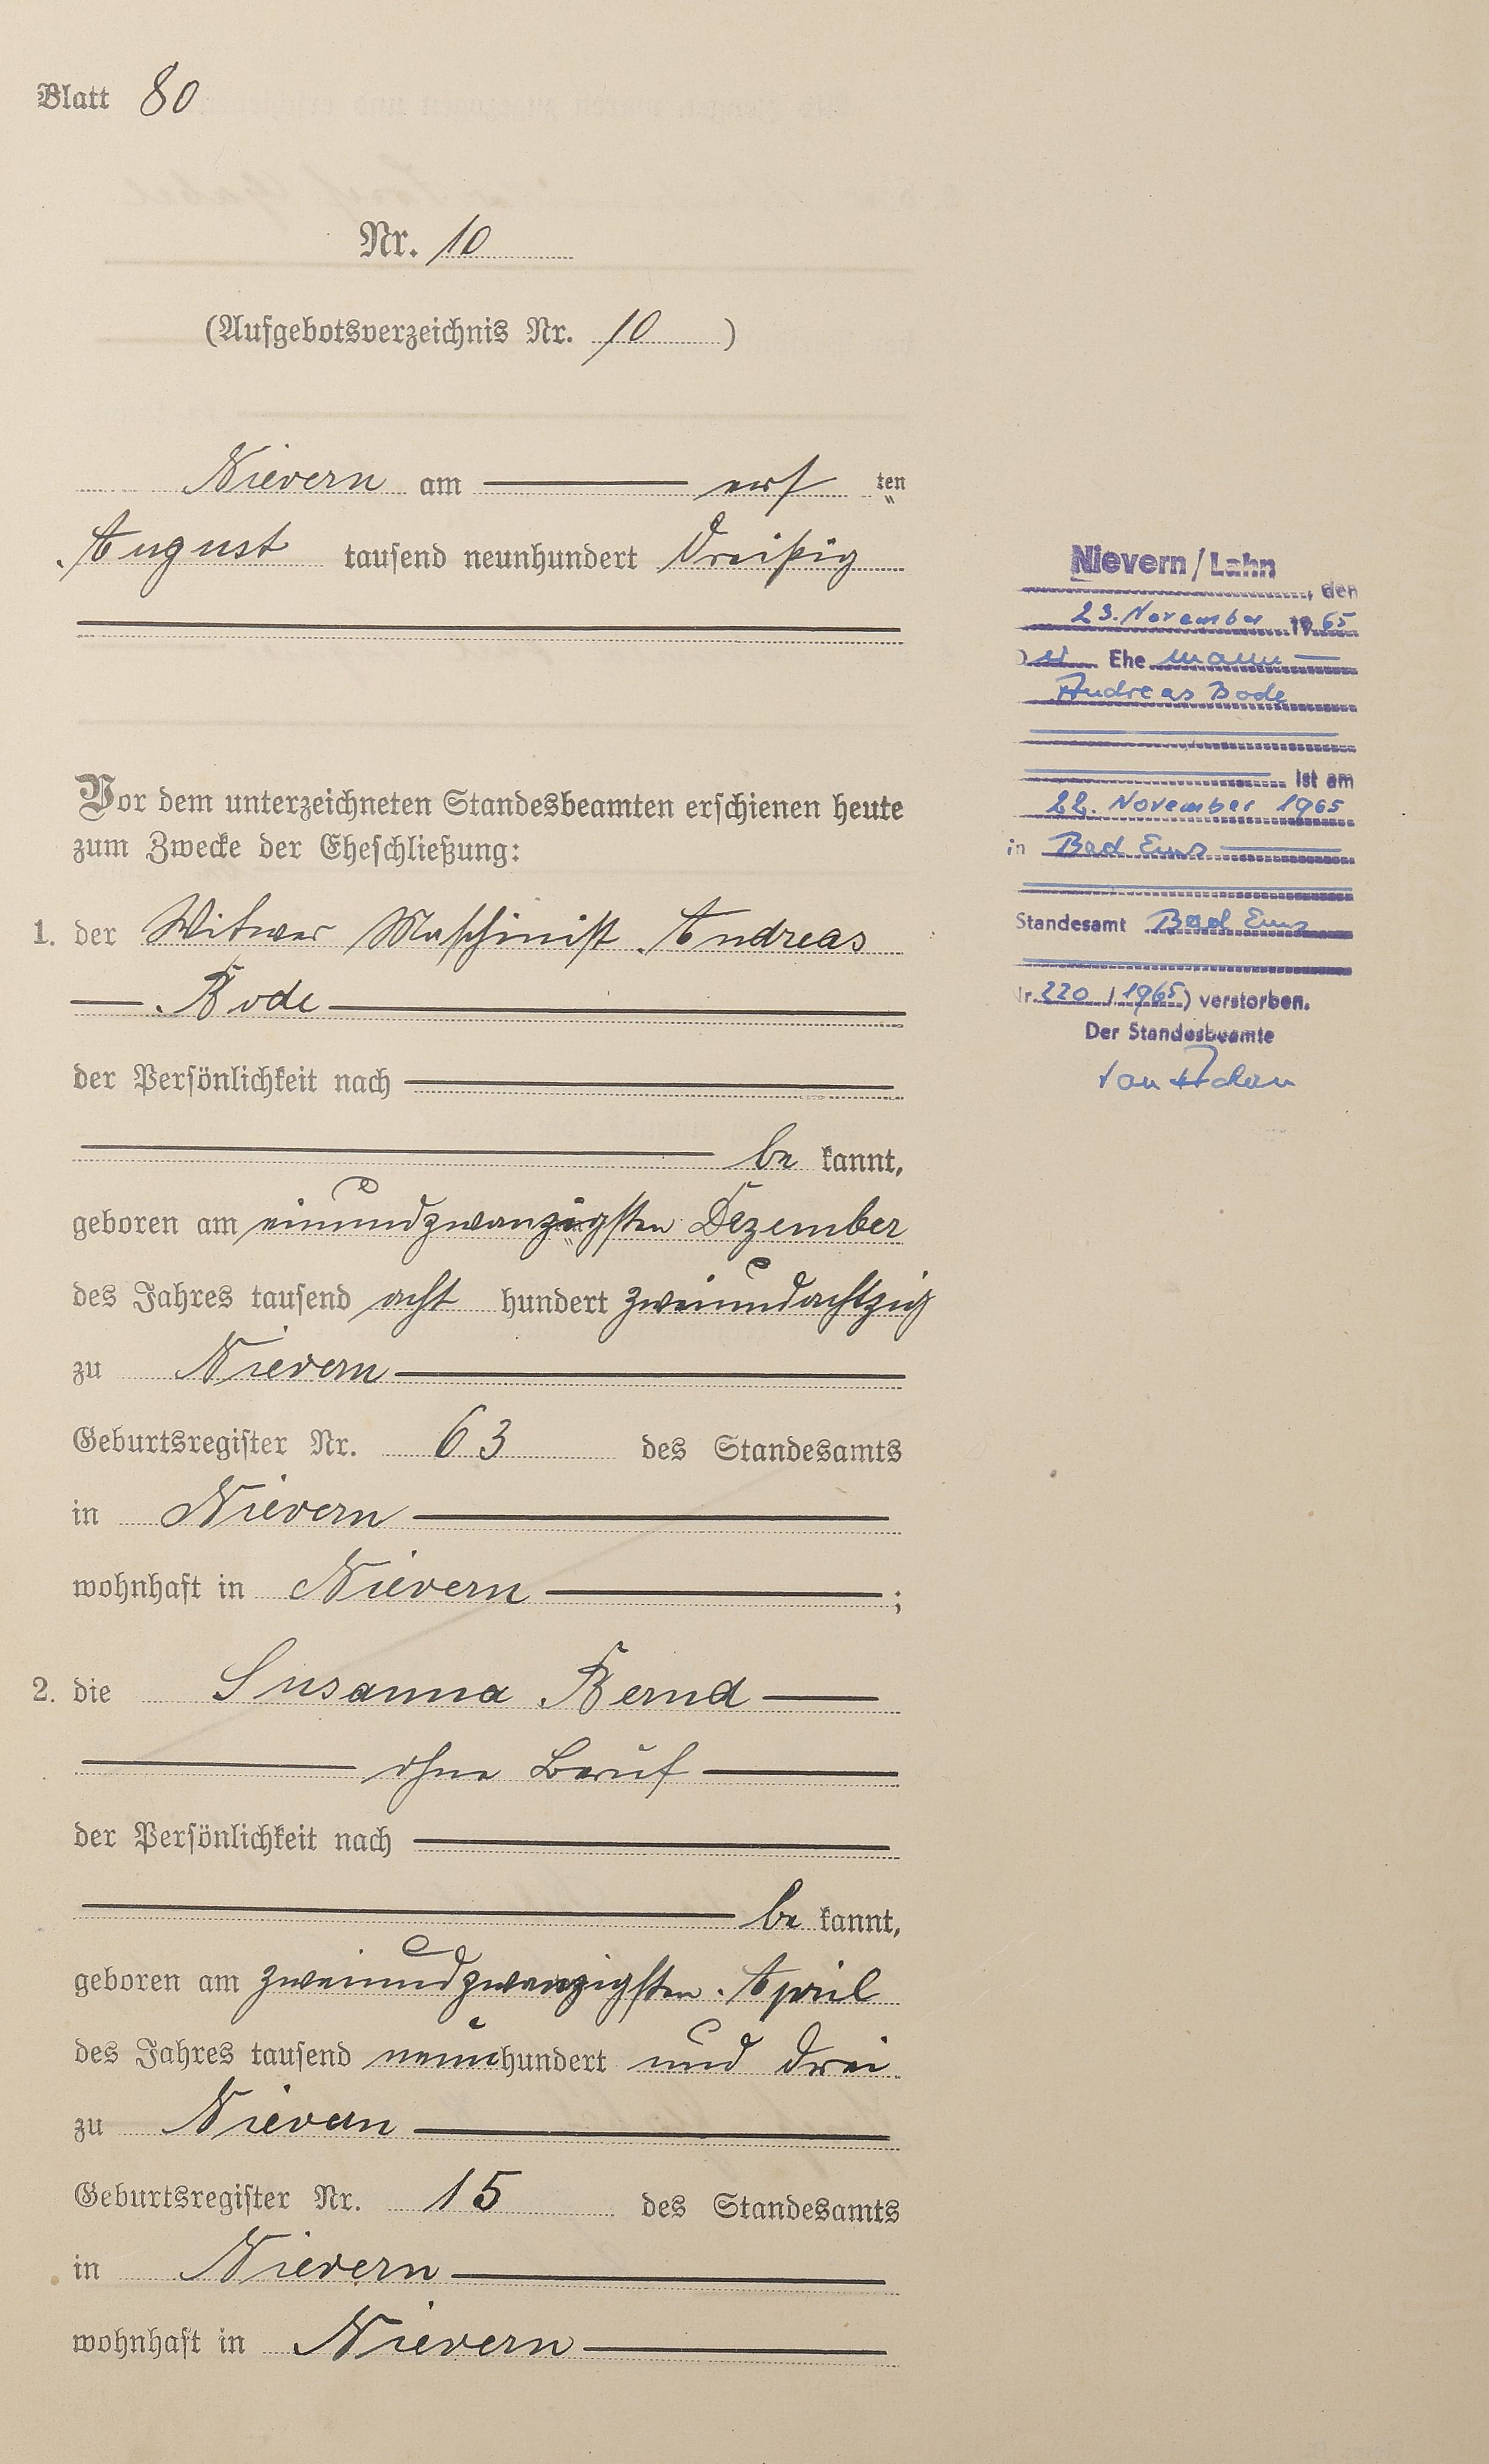 Blatt 80
Nr. 10
(Aufgebotsverzeichnis Nr. 10 )
Nievern am erſ ten
August tauſend neunhundert Dreißig
Vor dem unterzeichneten Standesbeamten erſchienen heute
zum Zwecke der Eheſchließung:
1. der Witwer Maſchiniſt Andreas
Bode
der Perſönlichkeit nach
be kannt,
geboren am einundzwanzigſten Dezember
des Jahres tauſend acht hundert zweiundachtzig
zu Nievern
Geburtsregiſter Nr. 63 des Standesamts
in Nievern
wohnhaft in Nievern ;
2. die Susanna Bernd
ohne Beruf
der Perſönlichkeit nach
be kannt,
geboren am zweiundzwanzigſten April
des Jahres tauſend neunhundert und drei
zu Nievern
Geburtsregiſter Nr. 15 des Standesamts
in Nievern
wohnhaft in Nievern
Nievern/Lahn
, den
23. November 1965
Der Ehe mann
Andreas Bode
ist am
22. November 1965
in Bad Ems
Standesamt Bad Ems
Nr. 220 / 1965) verstorben.
Der Standesbeamte